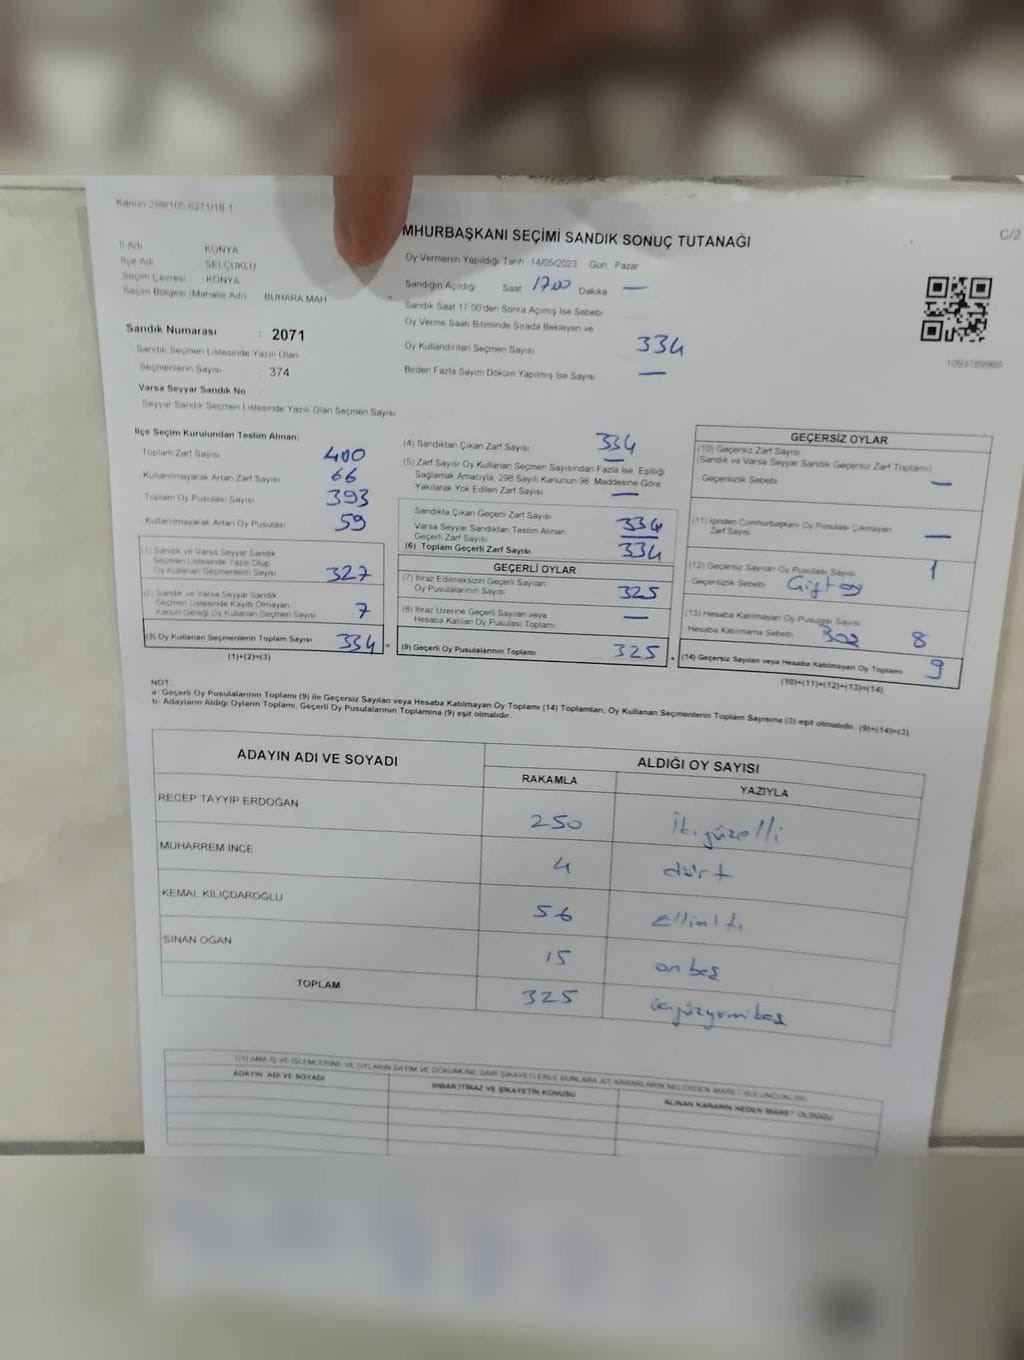 Kanun 298/105 6271/18-1
MHURBAŞKANI SEÇİMİ SANDIK SONUÇ TUTANAĞI
C/2
İl Adı KONYA
İlçe Adı SELÇUKLU
Seçim Çevresi : KONYA
Seçim Bölgesi (Mahalle Adı) BUHARA MAH
Sandık Numarası : 2071
Sandık Seçmen Listesinde Yazılı Olan
Seçmenlerin Sayısı 374
Varsa Seyyar Sandık No
Seyyar Sandık Seçmen Listesinde Yazılı Olan Seçmen Sayısı
Oy Vermenin Yapıldığı Tarih 14/05/2023 Gün Pazar
Sandığın Açıldığı Saat 17.00 Dakika —
Sandık Saat 17.00'den Sonra Açımış İse Sebebi
Oy Verme Saati Bitiminde Sırada Bekleyen ve
Oy Kullandırılan Seçmen Sayısı 334
Birden Fazla Sayım Döküm Yapılmış İse Sayısı —
1093789965
İlçe Seçim Kurulundan Teslim Alınan;
Toplam Zarf Sayısı 400
Kullanılmayarak Artan Zarf Sayısı 66
Toplam Oy Pusulası Sayısı 393
Kullanılmayarak Artan Oy Pusulası 59
(1) Sandık ve Varsa Seyyar Sandık
Seçmen Listesinde Yazılı Olup
Oy Kullanan Seçmenlerin Sayısı 327
(2) Sandık ve Varsa Seyyar Sandık
Seçmen Listesinde Kayıtlı Olmayan
Kanun Gereği Oy Kullanan Seçmen Sayısı 7
(3) Oy Kullanan Seçmenlerin Toplam Sayısı 334 =
(1)+(2)=(3)
(4) Sandıktan Çıkan Zarf Sayısı 334
(5) Zarf Sayısı Oy Kullanan Seçmen Sayısından Fazla İse, Eşitliği
Sağlamak Amacıyla, 298 Sayılı Kanunun 98. Maddesine Göre
Yakılarak Yok Edilen Zarf Sayısı —
Sandıkta Çıkan Geçerli Zarf Sayısı 334
Varsa Seyyar Sandıktan Teslim Alınan
Geçerli Zarf Sayısı —
(6) Toplam Geçerli Zarf Sayısı 334
GEÇERLİ OYLAR
(7) İtiraz Edilmeksizin Geçerli Sayılan
Oy Pusulalarının Sayısı 325
(8) İtiraz Üzerine Geçerli Sayılan veya
Hesaba Katılan Oy Pusulası Toplamı —
(9) Geçerli Oy Pusulalarının Toplamı 325 +
GEÇERSİZ OYLAR
(10) Geçersiz Zarf Sayısı
(Sandık ve Varsa Seyyar Sandık Geçersiz Zarf Toplamı)
- Geçersizlik Sebebi —
(11) İçinden Cumhurbaşkanı Oy Pusulası Çıkmayan
Zarf Sayısı —
(12) Geçersiz Sayılan Oy Pusulası Sayısı 1
- Geçersizlik Sebebi Çift oy
(13) Hesaba Katılmayan Oy Pusulası Sayısı 8
- Hesaba Katılmama Sebebi Boş
(14) Geçersiz Sayılan veya Hesaba Katılmayan Oy Toplamı 9
(10)+(11)+(12)+(13)=(14)
NOT:
a- Geçerli Oy Pusulalarının Toplamı (9) ile Geçersiz Sayılan veya Hesaba Katılmayan Oy Toplamı (14) Toplamları, Oy Kullanan Seçmenlerin Toplam Sayısına (3) eşit olmalıdır. (9)+(14)=(3)
b- Adayların Aldığı Oyların Toplamı, Geçerli Oy Pusulalarının Toplamına (9) eşit olmalıdır.
ADAYIN ADI VE SOYADI ALDIĞI OY SAYISI
RAKAMLA YAZIYLA
RECEP TAYYİP ERDOĞAN 250 ikiyüzelli
MUHARREM İNCE 4 dört
KEMAL KILIÇDAROĞLU 56 Ellialtı
SİNAN OĞAN 15 on beş
TOPLAM 325 üçyüzyirmibeş
OYLAMA İŞ VE İŞLEMLERİNE VE OYLARIN SAYIM VE DÖKÜMÜNE DAİR ŞİKAYETLERLE BUNLARA AİT KARARLARIN NELERDEN İBARET BULUNDUKLARI
ADAYIN ADI VE SOYADI İHBAR İTİRAZ VE ŞİKAYETİN KONUSU ALINAN KARARIN NEDEN İBARET OLDUĞU